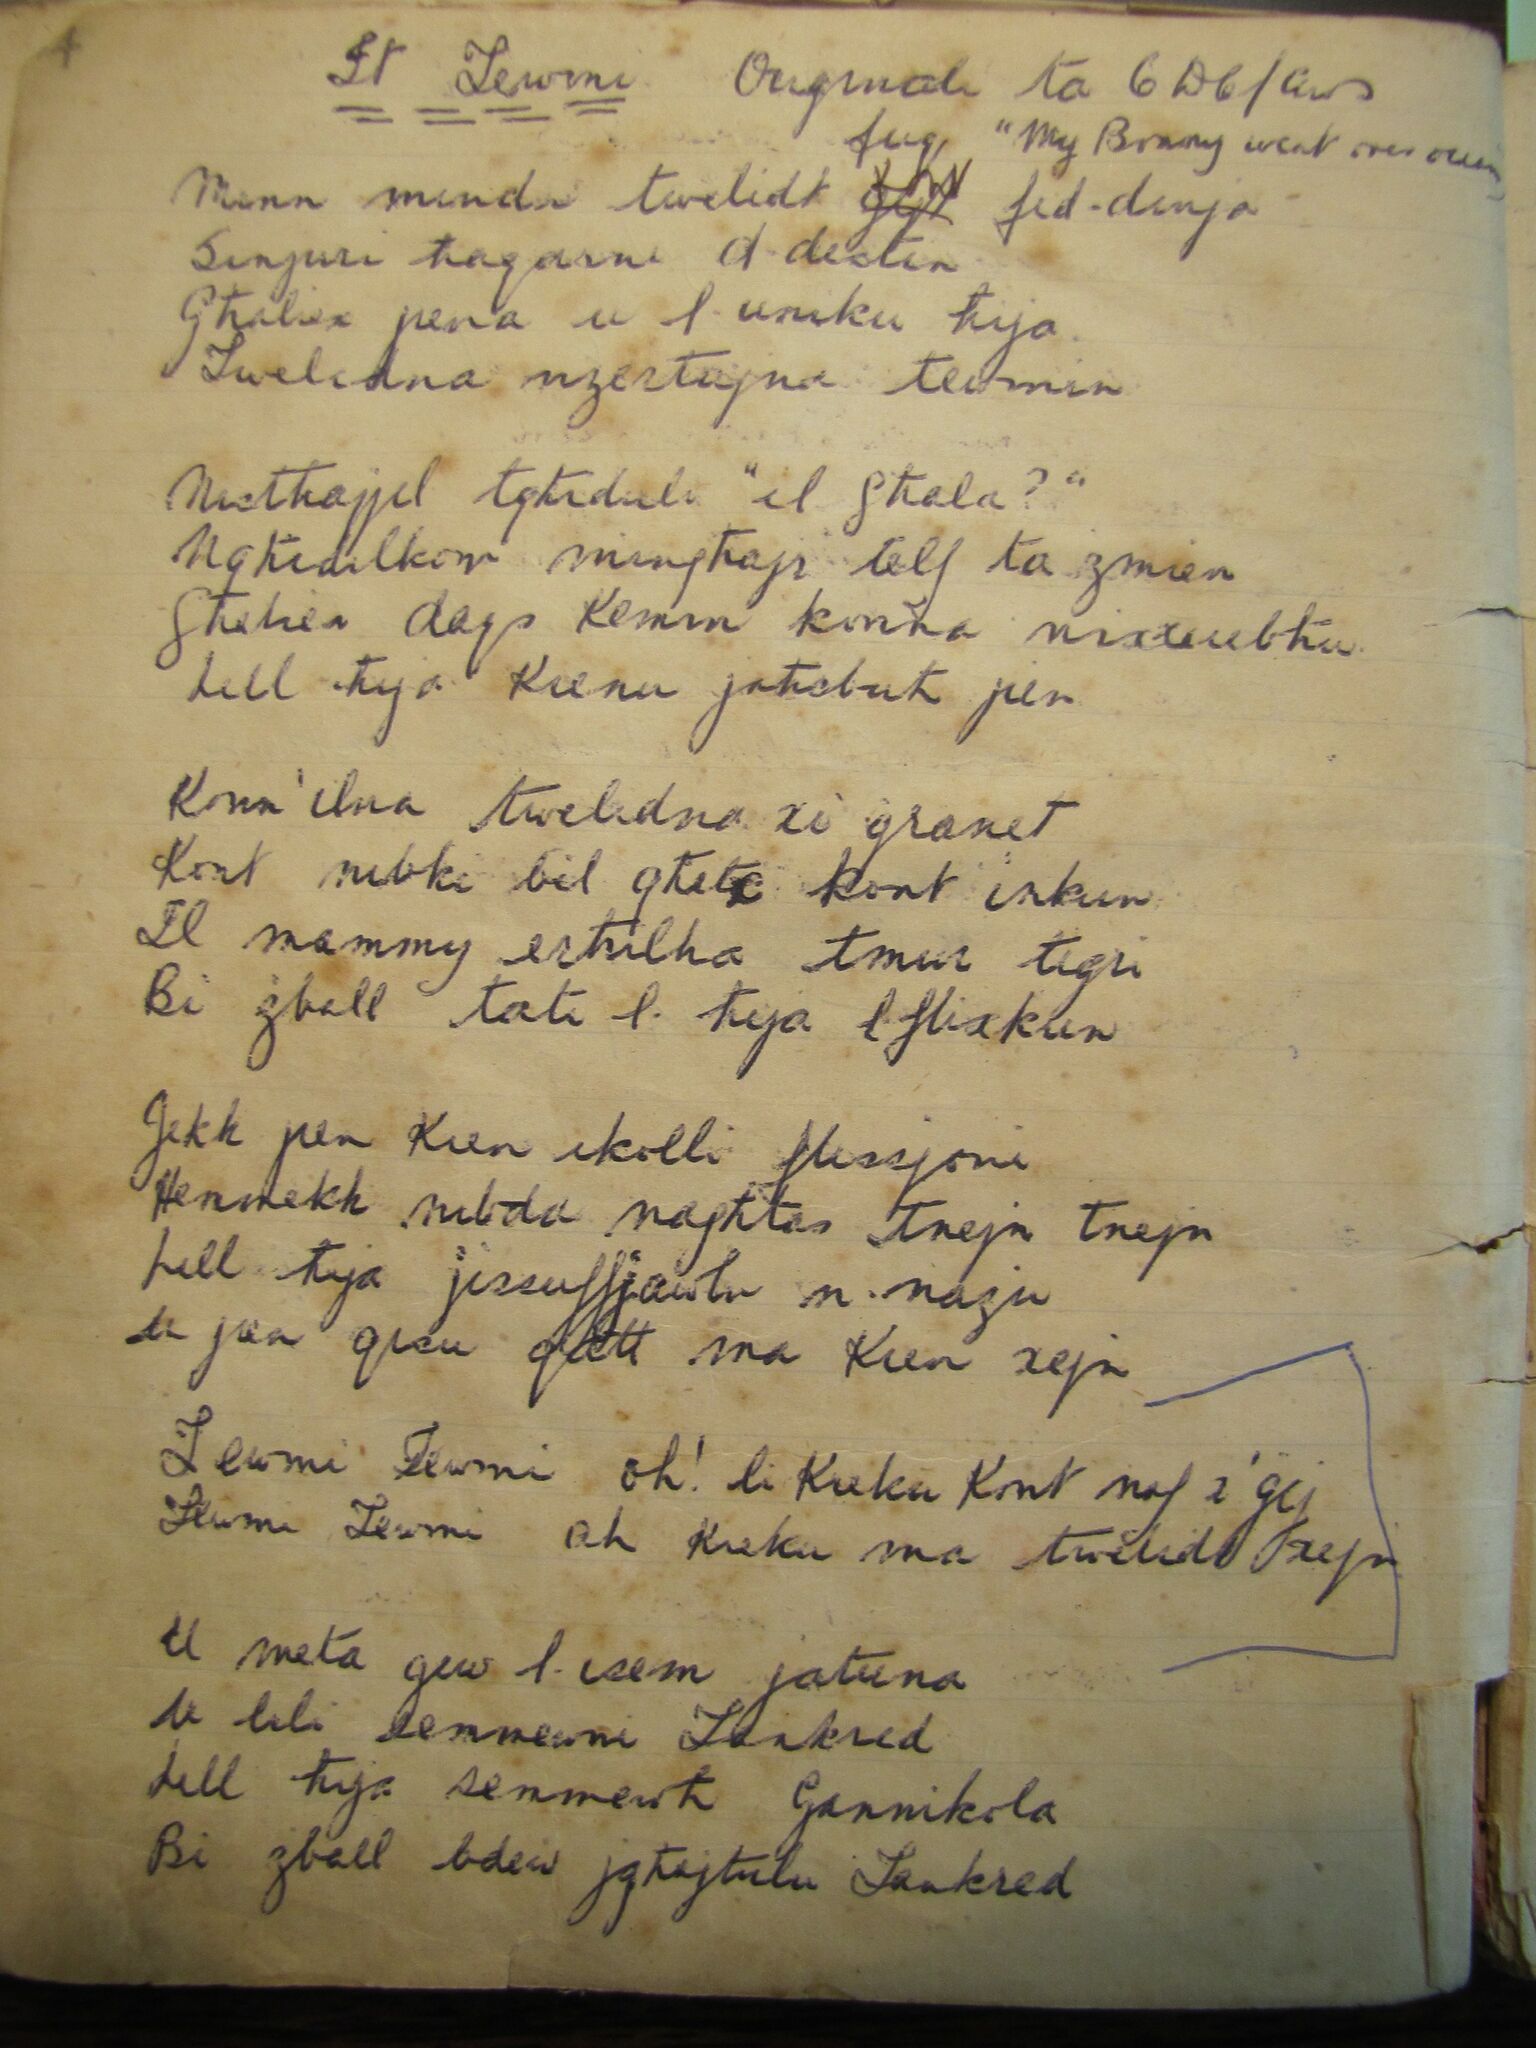 It Tewmi Originali ta
fuq "My Bonny went over ocean
Minn mindu twelidt fid-dinja
Dinjuri ħaqarni d-destin
Għaliex jiena u l-uniku ħija
Twelidna nzertajna tewmin
Nistħajjel tgħiduli "il għala?"
Ngħidilkom mingħajr telf ta żmien
Għaliex daqs kemm konna nixxiebhu
Lill ħija kienu jaħsbuh jien
Konn'ilna twelidna xi ġranet
Kont nibki bil għatx kont inkun
Il mammy ersħilha tmur tiġri
Bi żball tati l-ħija l-flixkun
Jekk jien kien ikolli flissjoni
Hemmekk nibda nagħtas tnejn tnejn
Lill ħija jissuffjawlu n-nażu
U jien qisu qatt ma kien xejn
Tewmi Tewmi oh! li kieku kont naf x'ġej
Tewmi Tewmi oh kieku ma twelidt xejn
U meta ġew l-isem jatuna
U lili semmewni Tankred
Lill ħija semmewh Gannikola
Bi żball bdew jgħajtulu Tankred